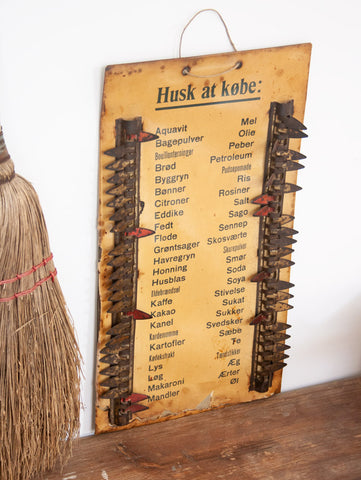 Husk at købe:
Aquavit
Bagepulver
Bouillonterninger
Brød
Byggryn
Bønner
Citroner
Eddike
Fedt
Fløde
Grøntsager
Havregryn
Honning
Husblas
Ildebrændsel
Kaffe
Kakao
Kanel
Kardemomme
Kartofler
Køkøkstøkt
Lys
Løg
Makaroni
Mandler
Mel
Olie
Peber
Petroleum
Pudsepomade
Ris
Rosiner
Salt
Sago
Sennep
Skosværte
Skurepulver
Smør
Soda
Soya
Stivelse
Sukat
Sukker
Svedsker
Sæbe
Te
Tændstikker
Æg
Ærter
Øl